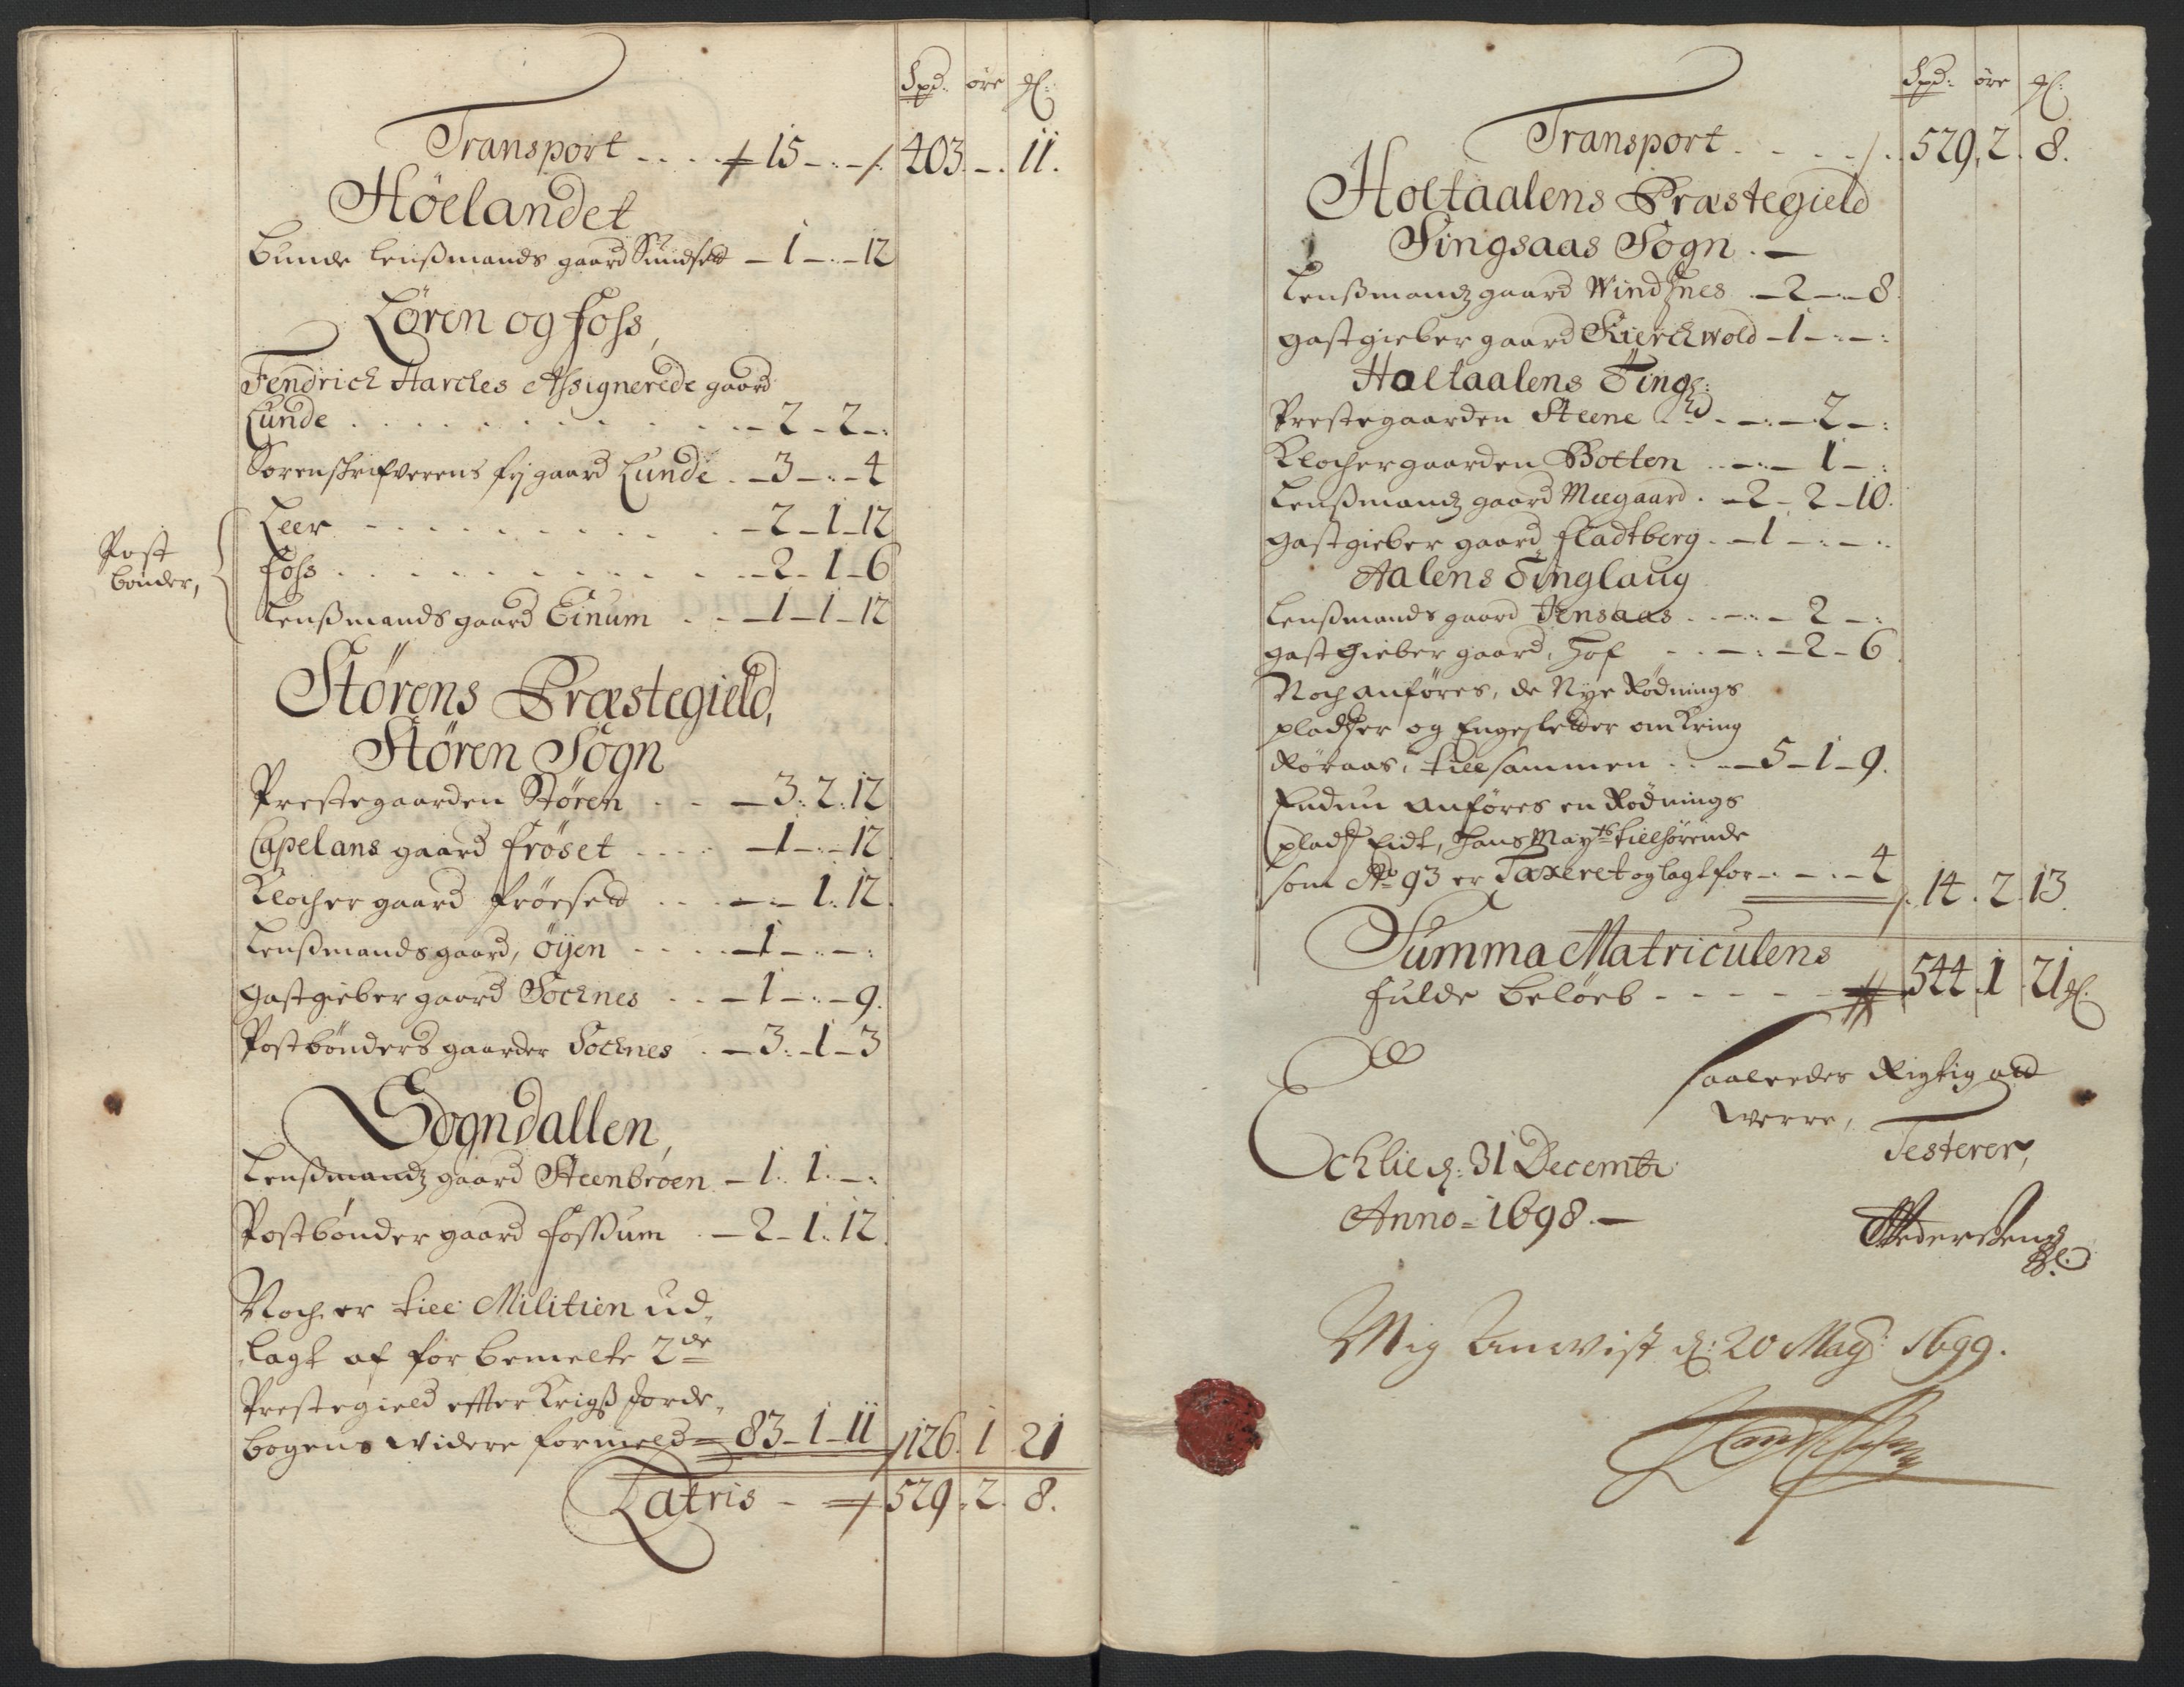 Spd: øre
Transport - - - 15 - - - 403 - - 11.
Høelandet
Bunde Lensmands gaard Sundset - 1 - - 12
Løren og Foss,
Fendrich Starches Assignerede gaard
Lunde . . . . . . . . . - 2 - 2 -:
Sorenskrifverens fri gaard Lunde . - 3 - - 4
Post
bønder,
Leer - . . . . . . . . - 2 - 1 - 12
Foss . . . . . . . . . - 2 - 1 - 6
Lensmands gaard Einum . . - 1 - 1 - 12
Størens Præstegield,
Støren Sogn
Prestegaarden Støren . . - 3: 2: 12
Capelans gaard Frøset - - - - 1 - - 12
Klocher gaard Frøesett . . - - - 1: 12.
Lensmands gaard, Øyen - - - - 1 - - :
Gastgieber gaard Sochnes . . - 1 - - 9.
Postbønders gaarder Sochnes . - 3: - 1 - 3
Sogndallen,
Lensmandz gaard Steenbroen - 1: 1: - :
Postbønder gaard Fossum . - 2 - 1: 12.
Noch er till Militien ud-
lagt af for bemelte 2de
Prestegield effter Krigs Jorde-
bogens widere formeld - 83 - 1 - 11 126. 1 21
Latris - 529. 2. 8.
Spd: øre
Transport . - - - - . 529. 2. 8.
Holtaalens Præstegield
Singsaas Sogn . -
Lensmandz gaard Windsnes . - 2 - - 8.
Gastgieber gaard Kierchwold - 1 - : - :
Holtaalens Ting:
Prestegaarden Steene - - : - 2 - :
Klochergaarden Botten . . - : - 1 - :
Lensmandz gaard Meegaard . - 2 - 2 - 10.
Gastgieber gaard Fladtberg . - 1 - : - :
Aalens Tinglaug
Lensmands gaard Jensaas . . - : - 2 - :
Gastgieber gaard, Hof - . . - : - 2 - 6.
Noch anføres, de Nye Rødnings
pladser og Engesletter omkring
Røraas, tillsammen . . - - 5 - 1 - 9.
Endnu anføres en Rødnings
plads Eidt, Hans Mayts tillhørende
som Ao 93 er Taxeret og lagt for - . - . - 4 14. 2. 13.
Summa Matriculens
fulde beløeb - - - - 544. 1. 21
Saaledes Rigtig att
werre,
Testerer,
Echlie d: 31 Decembr:
Anno = 1698. -
Pedersen
Mig Anvist d: 20 Maij: 1699.